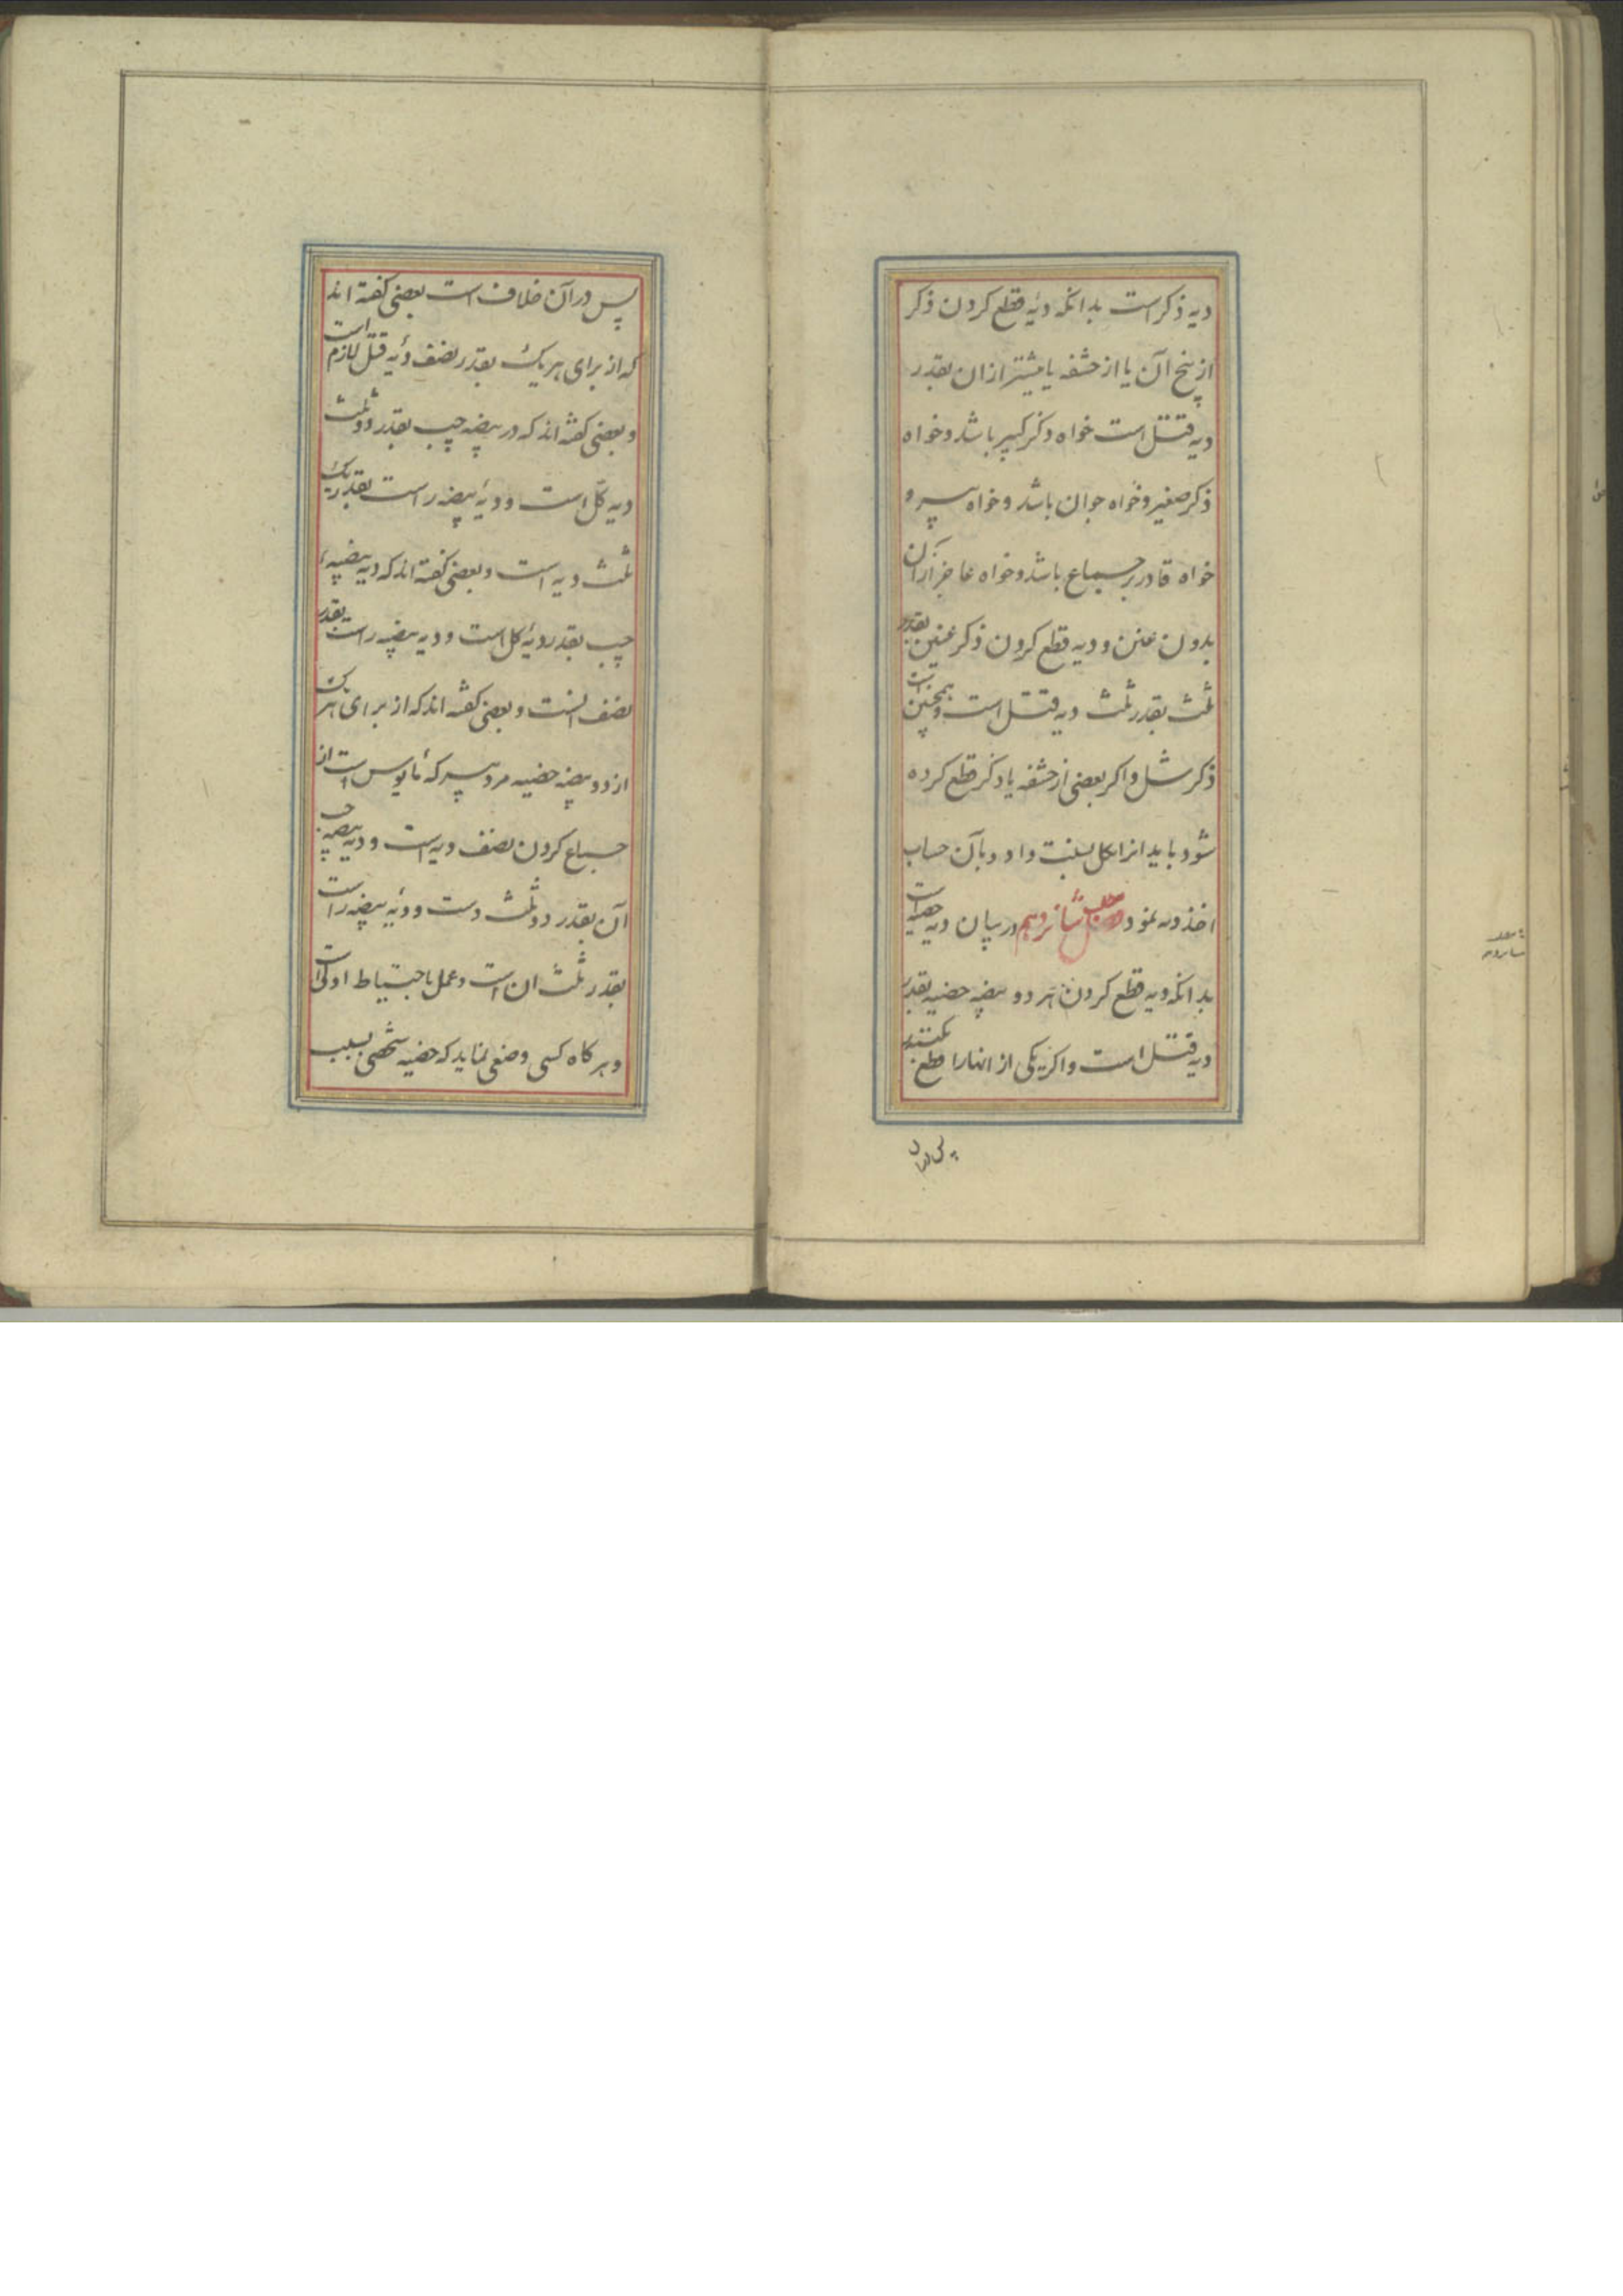 دیه ذکر است بدانکه دیه قطع کردن ذکر
از بیخ آن یا از حشفه یا بیشتر از ان بقدر
دیه قتل است خواه ذکر کبیر باشد و خواه
ذکر صغیر و خواه جوان باشد و خواه پیر و
خواه قادر بر جماع باشد و خواه عاجز از آن
بدون عنن و دیه قطع کردن ذکر عنین بقدر
ثلث بقدر ثلث دیه قتل است و همچنین است
ذکر شل و اکر بعضی از حشفه یا ذکر قطع کرده
شود باید انرا بکل نسبت داد و بآن حساب
اخذ دیه نمود مطلب شانزدهم در بیان دیه خصیه است
بدانکه دیه قطع کردن هر دو بیضه خصیه بقدر
دیه قتل است و اکر یکی از انها را قطع بکنند
پس در آن
پس در آن خلاف است بعضی کفته اند
که از برای هر یک بقدر نصف دیه قتل لازم است
و بعضی کفته اند که در بیضه چپ بقدر دو ثلث
دیه کل است و دیه بیضه راست بقدر یک
ثلث دیه است و بعضی کفته اند که دیه بیضه
چپ بقدر دیه کل است و دیه بیضه راست بقدر
نصف انست و بعضی کفته اند که از برای هر یک
از دو بیضه خصیه مرد پیر که مأیوس است از
جماع کردن نصف دیه است و دیه بیضه چپ
آن بقدر دو ثلث دست و دیه بیضه راست
بقدر ثلث ان است و عمل باحتیاط اولی است
و هر کاه کسی وضعی نماید که خصیه شخصی بسبب